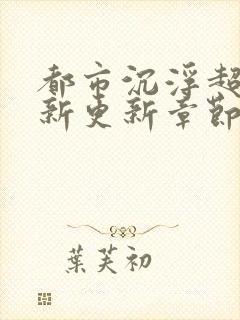 都市沉浮超
新更新章節
葉芙初